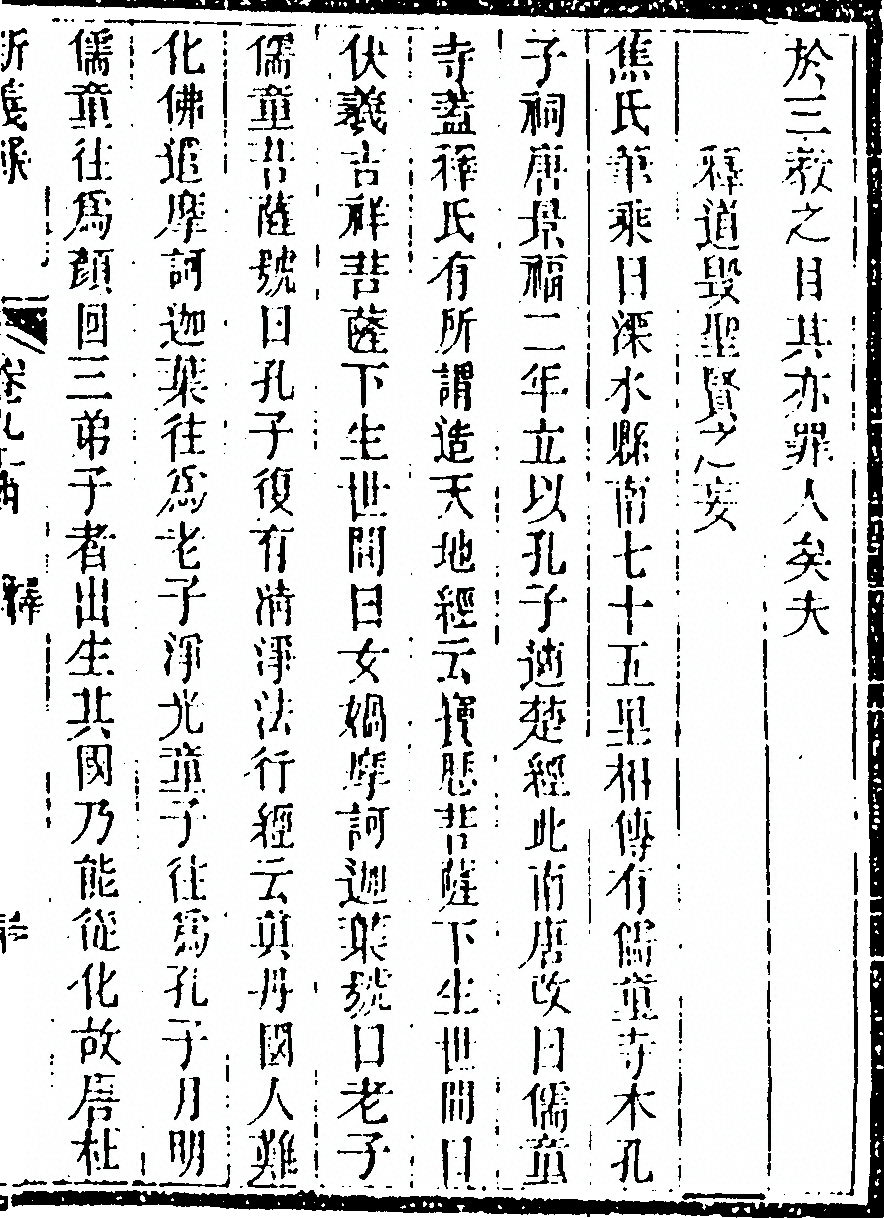 於三教之目其亦罪人矣夫
釋道毀聖賢之妄
焦氏筆乘曰溧水縣南七十五里相傳有儒童寺本孔
子祠唐景福二年立以孔子適楚經此南唐改曰儒童
寺蓋釋氏有所謂造天地經云寶曆菩薩下生世間曰
伏羲吉祥菩薩下生世間曰女媧摩訶迦葉號曰老子
儒童菩薩號曰孔子復有清淨法行經云真丹國人難
化佛遣摩訶迦葉往爲老子淨光童子往爲孔子月明
儒童往爲顏回三弟子者出生其國乃能從化故唐杜